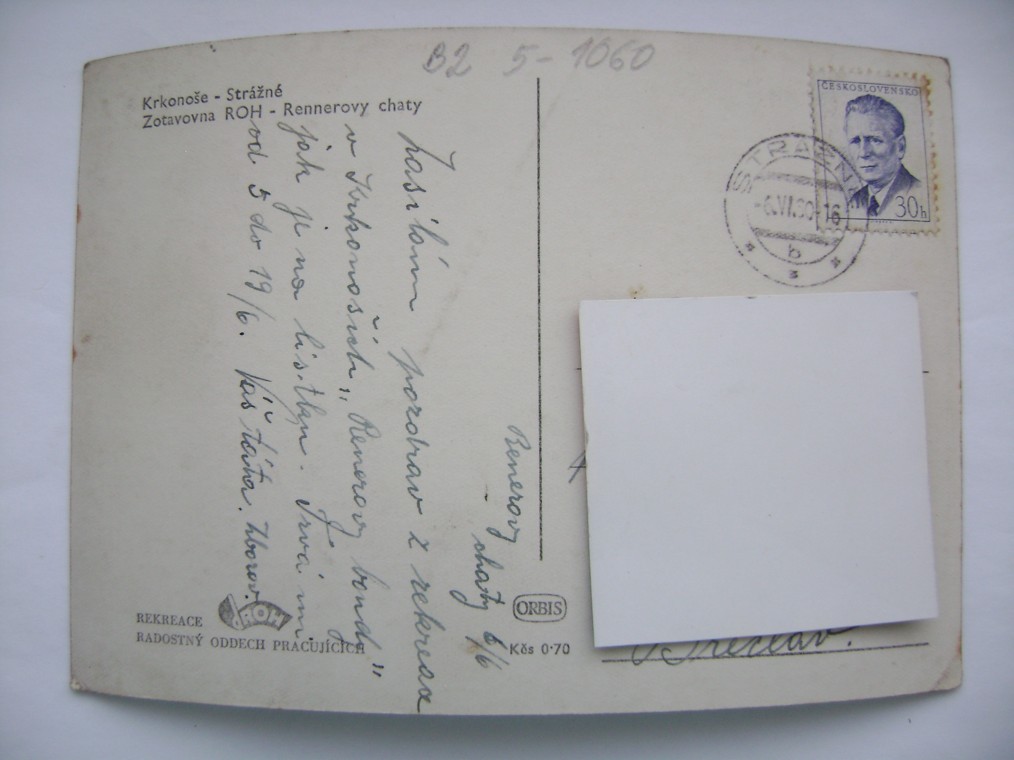 B2 5-1060
Krkonoše - Strážné
Zotavovna ROH - Rennerovy chaty
ČESKOSLOVENSKO
30h
STRÁŽNÉ
-6.VI.60-16
b
Renerovy
chaty 6/6
Zasílám pozdrav z rekreace
v Krkonoších „Renerovy boudy"
jak je na lístku. Trvá mi
od 5 do 19/6. Váš táta.
REKREACE
ROH
RADOSTNÝ ODDECH PRACUJÍCÍCH
ORBIS
Kčs 0·70
Břeclav.